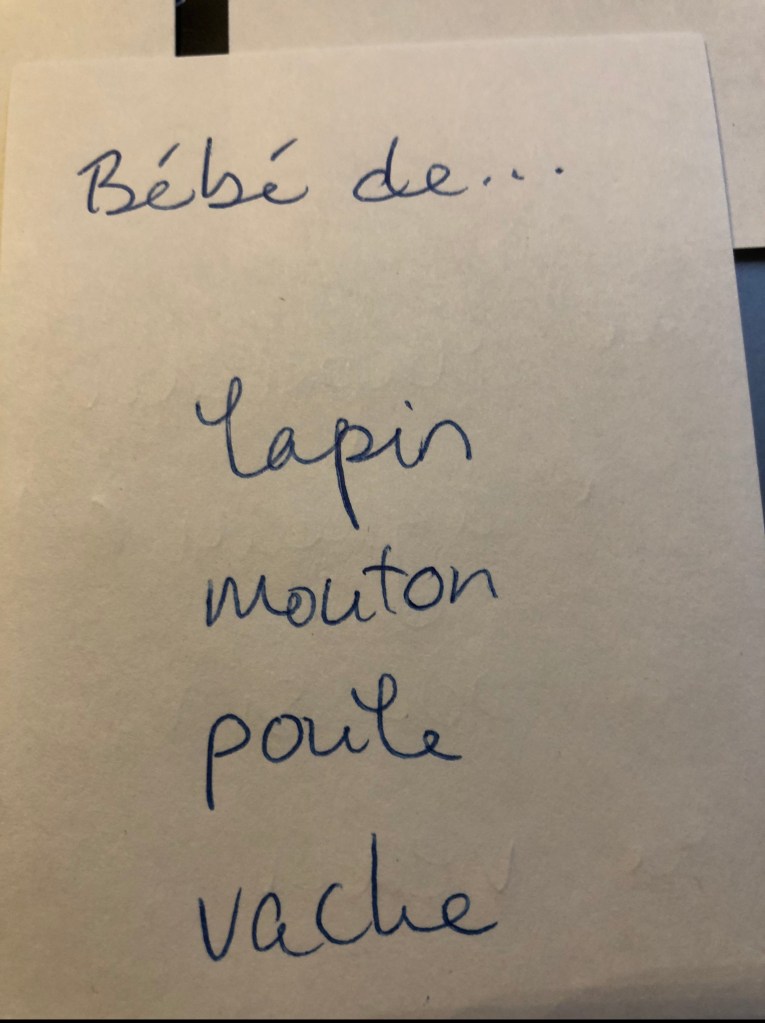 Bébé de...
lapin
mouton
poule
vache